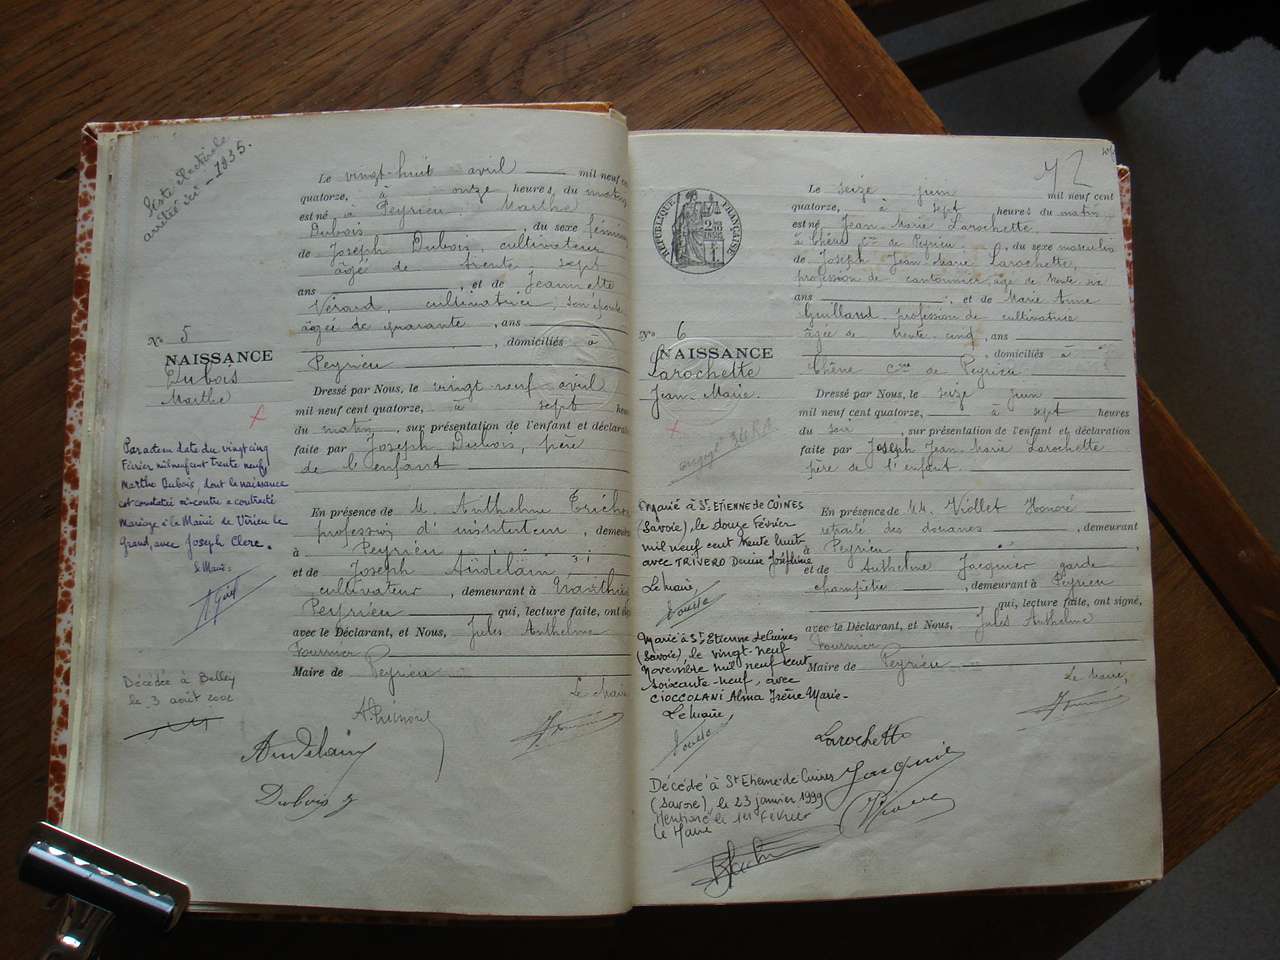 liste électorale
arrêtée ici - 1935.
Le vingt-huit avril mil neuf cent
quatorze, à onze heures, du matin
est né à Peyrieu Marthe
Dubois, du sexe féminin
de Joseph Dubois, cultivateur
âgé de trente sept
ans, et de Jeannette
cultivatrice, son épouse
âgée de quarante, ans
, domiciliés à
Peyrieu
No 5
NAISSANCE
Dubois
Marthe
Dressé par Nous, le vingt-neuf avril
mil neuf cent quatorze, à sept heures
du matin, sur présentation de l'enfant et déclaration
faite par Joseph Dubois, père
de l'enfant
En présence de M. Anthelme
profession d'instituteur, demeurant
à Peyrieu
et de Joseph Audelain
cultivateur, demeurant à
Peyrieu qui, lecture faite, ont signé
avec le Déclarant, et Nous, Jules Anthelme
Fournier
Maire de Peyrieu
Par acte en date du vingt cinq
Février mil neuf cent trente neuf,
Marthe Dubois, dont la naissance
est constatée ci-contre a contracté
Mariage à la Mairie de Virieu le
Grand, avec Joseph Clerc.
Le Maire:
Décédée à Belley
le 3 août 2002
Le Maire
Audelain
Dubois J
42
RÉPUBLIQUE FRANÇAISE
Le seize juin mil neuf cent
quatorze, à sept heures du matin
est né Jean Marie Larochette
à Chêne Cne de Peyrieu, du sexe masculin
de Joseph Jean Marie Larochette,
profession de cantonnier, âgé de trente six
ans, et de Marie Anne
Guilland profession de cultivatrice
âgée de trente cinq, ans
, domiciliés à
Chêne Cne de Peyrieu
No 6
NAISSANCE
Larochette
Jean-Marie.
Dressé par Nous, le seize juin
mil neuf cent quatorze, à sept heures
du soir, sur présentation de l'enfant et déclaration
faite par Joseph Jean Marie Larochette
père de l'enfant
En présence de M. Viollet Honoré
retraité des douanes, demeurant
à Peyrieu
et de Anthelme Jacquier garde
champêtre, demeurant à Peyrieu
qui, lecture faite, ont signé,
avec le Déclarant, et Nous, Jules Anthelme
Fournier
Maire de Peyrieu
Marié à St. ETIENNE de CUINES
(Savoie), le douze Février
mil neuf cent trente huit
avec TRIVERO Denise Joséphine
Le Maire,
Marié à St. Etienne de Cuines
(Savoie), le vingt-neuf
novembre mil neuf cent
soixante-neuf, avec
CIOCCOLANI Alma Irène Marie-
Le Maire,
Décédé à St Etienne-de-Cuines
(Savoie), le 23 janvier 1999
Mentionné le 1er Février
Le Maire
Le Maire,
Larochette
Jacquier